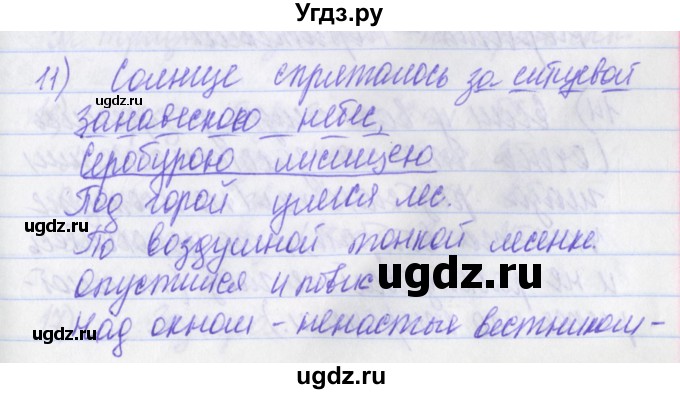 Угдз.ру
11) Солнце спряталось за ситцевой
занавескою небес,
Серобурою лисицею
Под горой улегся лес.
По воздушной тонкой лесенке
опустился и повис
Над окном - ненастья вестником -
©ugdz.ru
©ugdz.ru
ugdz.ru
©ugdz.ru
©ugdz.ru
ugdz.ru